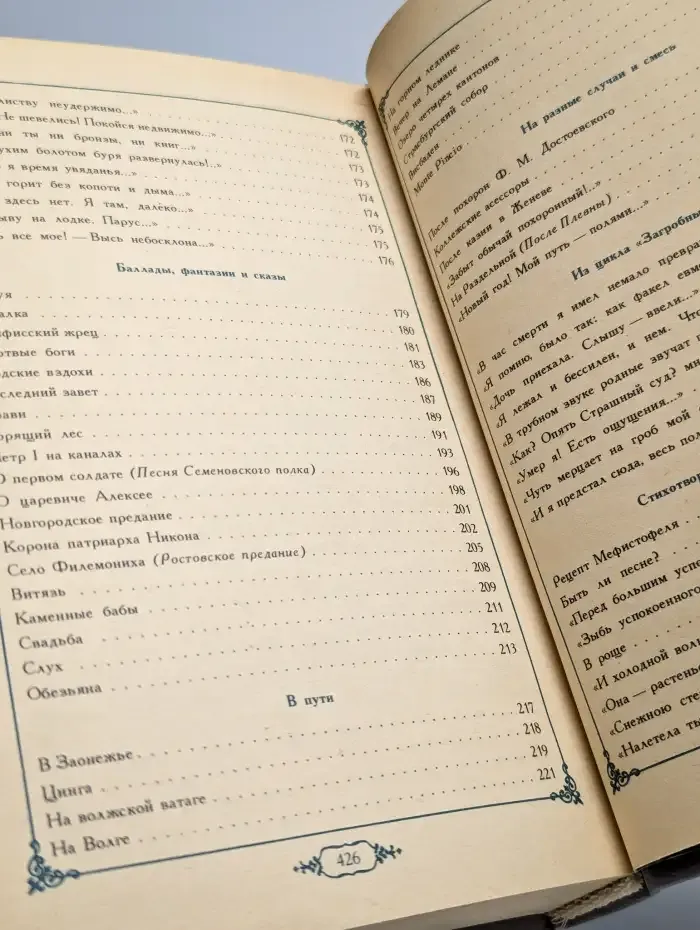 листву неудержимо...» 172
Не шевелись! Покойся недвижимо...» 172
ни ты ни бронза, ни книг...» 173
ухим болотом буря развернулась!..» 173
я время увяданья...» 174
горит без копоти и дыма...» 174
здесь нет. Я там, далёко...» 175
ыву на лодке. Парус...» 175
ь все мое! — Высь небосклона...» 176
Баллады, фантазии и сказы
уя 179
алка 180
фисский жрец 181
ртвые боги 183
дские вздохи 186
следний завет 187
рави 189
орящий лес 191
етр I на каналах 193
О первом солдате (Песня Семеновского полка) 196
О царевиче Алексее 198
Новгородское предание 201
Корона патриарха Никона 202
Село Филемониха (Ростовское предание) 205
Витязь 208
Каменные бабы 209
Свадьба 211
Слух 212
Обезьяна 213
В пути
В Заонежье 217
Цинга 218
На волжской ватаге 219
На Волге 221
426
На горном леднике
Вечер на Лемане
Озеро четырех кантонов
Страсбургский собор
Висбаден
Monte Pincio
На разные случаи и смесь
После похорон Ф. М. Достоевского
Коллежские асессоры
После казни в Женеве
«Забыт обычай похоронный!..»
На Раздельной (После Плевны)
«Новый год! Мой путь — полями...»
Из цикла «Загробны
«В час смерти я имел немало превра
«Я помню, было так: как факел евм
«Дочь приехала. Слышу — ввели...»
«Я лежал и бессилен, и нем. Что
«В трубном звуке родные звучат г
«Как? Опять Страшный суд? мн
«Умер я! Есть ощущения...»
«Чуть мерцает на гроб мой
«И я предстал сюда, весь пол
Стихотвор
Рецепт Мефистофеля
Быть ли песне?
«Перед большим успе
«Зыбь успокоенного
В роще
«И холодной волн
«Она — растень
«Снежною сте
«Налетела ты